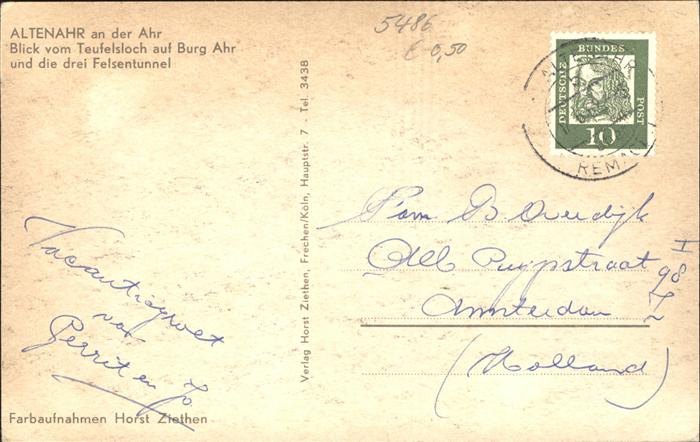 ALTENAHR an der Ahr
Blick vom Teufelsloch auf Burg Ahr
und die drei Felsentunnel
5486
€ 0,50
DEUTSCHE BUNDES POST
10
REMAG
Verlag Horst Ziethen, Frechen/Köln, Hauptstr. 7 - Tel. 3438
Fam B Overdijk
Alb Cuypstraat 98 I
Amsterdam Z
(Holland)
Vacantiegroet
van
Gerrit en Jo
Farbaufnahmen Horst Ziethen